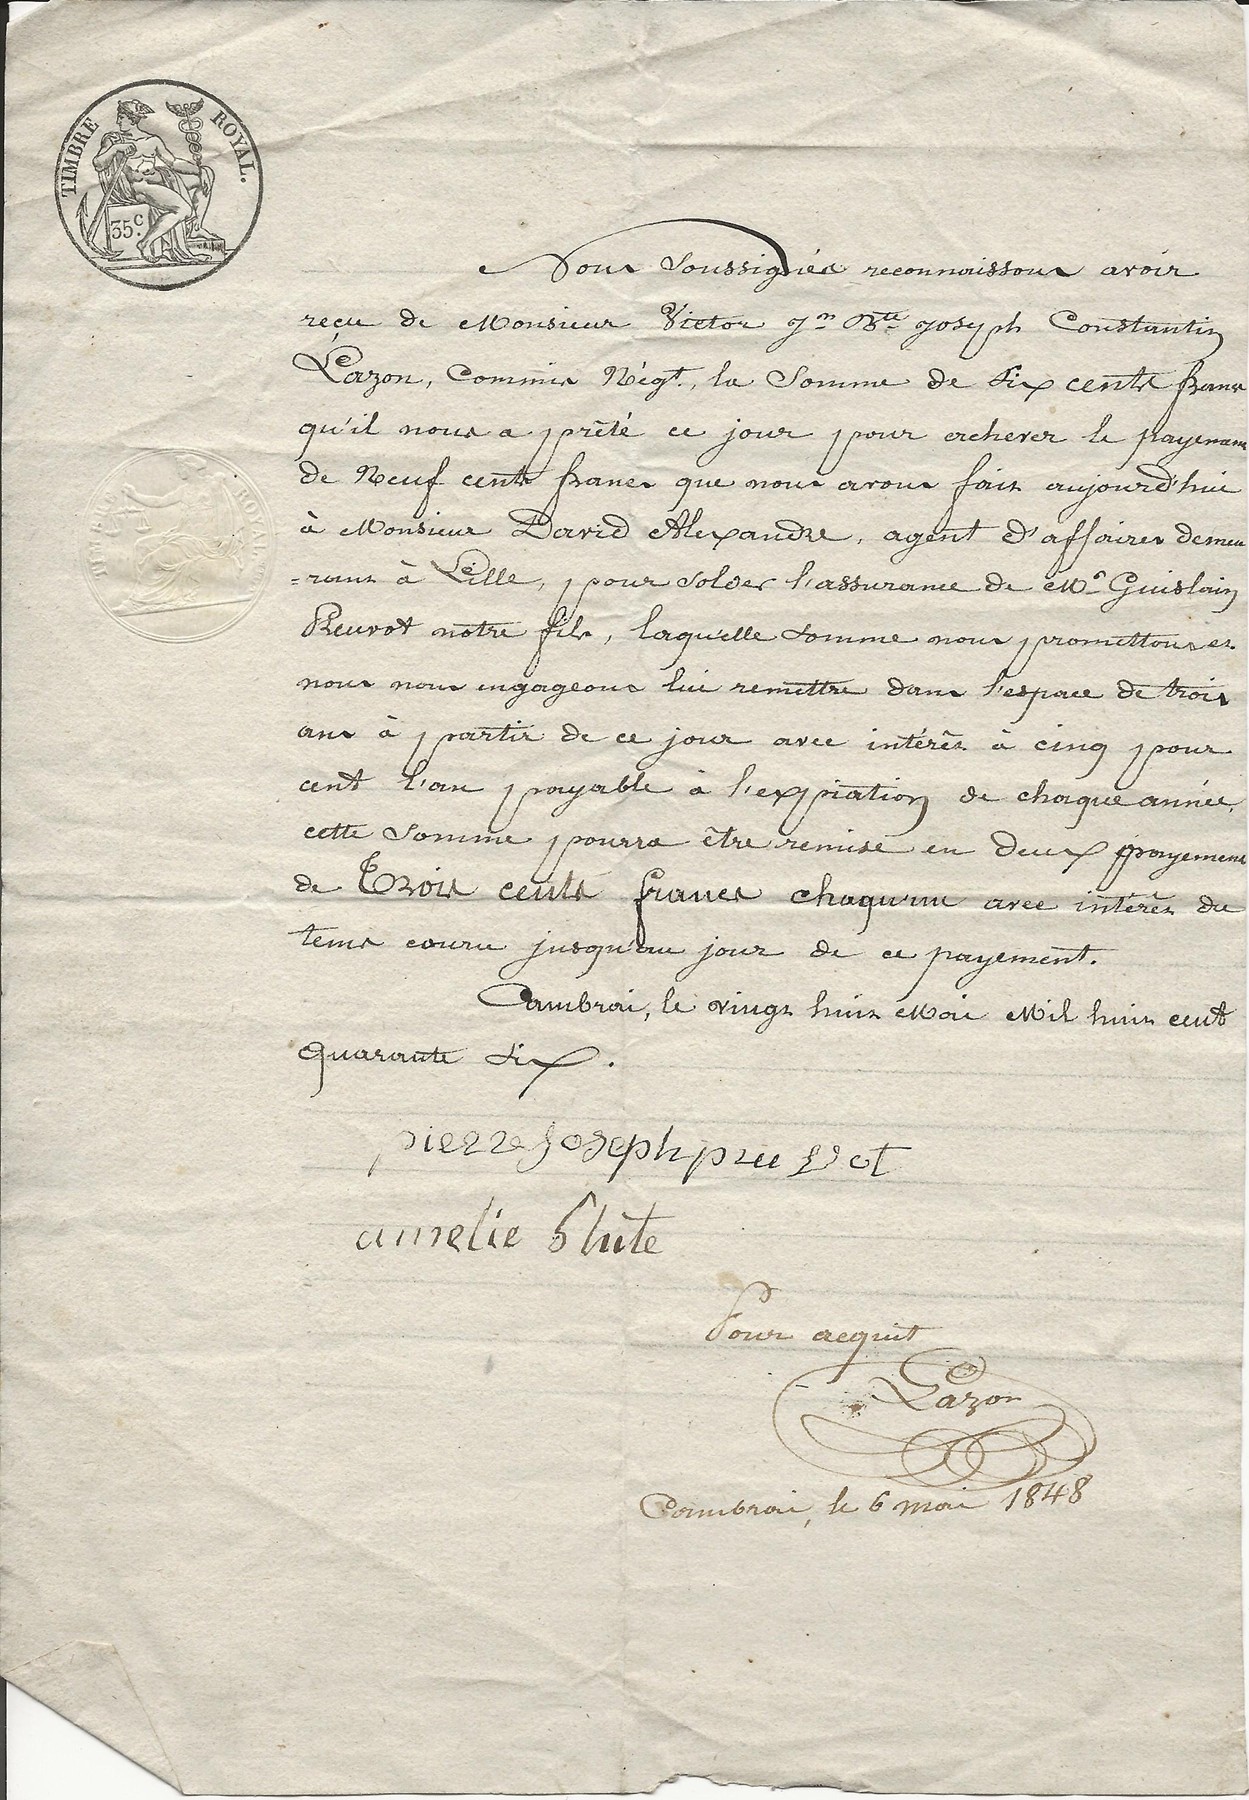 TIMBRE ROYAL.
35c.
Nous soussignés reconnaissons avoir
reçu de Monsieur Victor Jn Bte Joseph Constantin
Lazon, Commis Négt., la Somme de Six cents francs
qu'il nous a prêté ce jour pour achever le payement
de Neuf cents francs que nous avons fait aujourd'hui
à Monsieur David Alexandre, agent d'affaires demeu
=rant à Lille, pour solder l'assurance de Mr Guislain
Preuvot notre fils, laquelle somme nous promettons et
nous nous engageons lui remettre dans l'espace de trois
ans à partir de ce jour avec intérêt à cinq pour
cent l'an payable à l'expiration de chaque année,
cette somme pourra être remise en deux payements
de Trois cents francs chaqu'un avec intérêt du
tems couru jusqu'au jour de ce payement.
Cambrai, le vingt huit Mai Mil huit cent
quarante six.
pierre Joseph preuvot
amelie
Pour acquit
Lazon
Cambrai, le 6 mai 1848